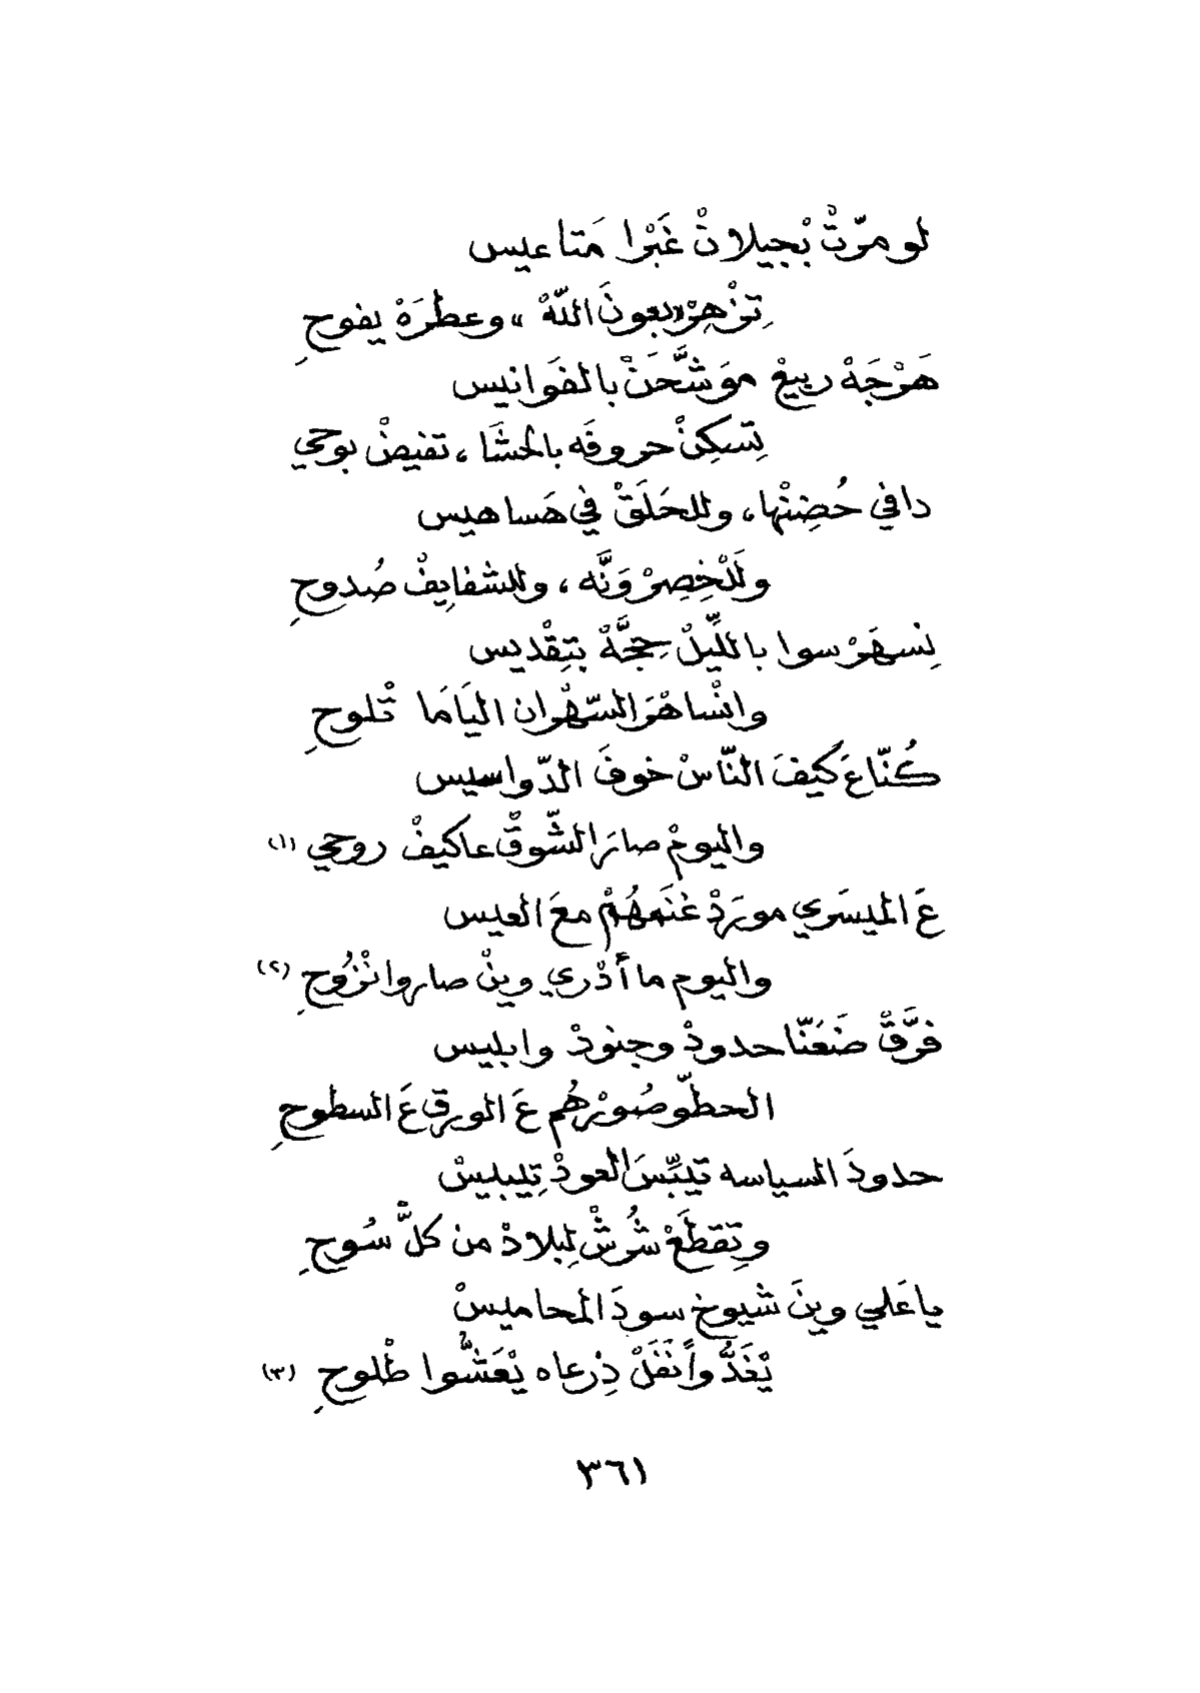 لو مرّتْ بْجيلانْ غَبْرا مَتاعيس
تِزْهِرْ «بعونَ اللّهْ»، وعطرَهْ يفوحِ
هَرْجَهْ ربيعْ موَشَّحَنْ بالفَوانيس
تِسكِنْ حروفَه بالحشَا، تفيضْ بوحي
دافي حُضِنْها، وللحَلَقْ في هَساهيس
وللْخِصِرْ وَنَّه، وللشفايِفْ صُدوحِ
نِسهَرْ سوا بالليّلْ حِجَّةْ بتِقْديس
وانْساهْوَ السّهْران اليَامَا تْلوحِ
كُنّا عَ كَيفَ النّاسْ خوفَ الدّواسيس
واليومْ صارَ الشّوقْ عاكيفْ روحي (١)
عَ الميسَري مورَدْ غنَمهُمْ معَ العيس
واليوم ما أدْري وينْ صاروا نْزُوحِ (٢)
فرَّقْ ضَعَنّا حدودْ وجنودْ وابليس
الحطّو صُورْهُم عَ الورق عَ السطوحِ
حدودَ السياسه تيبِّسَ العودْ تِيبيسْ
وتِقطَعْ شُرُشْ لِبلادْ من كلّ سُوحِ
يا عَلي وينَ شيوخ سودَ المحاميسْ
يْغَدُّوا نَفَلْ ذِرعاه يْعَشُّوا طْلوحِ (٣)
٣٦١